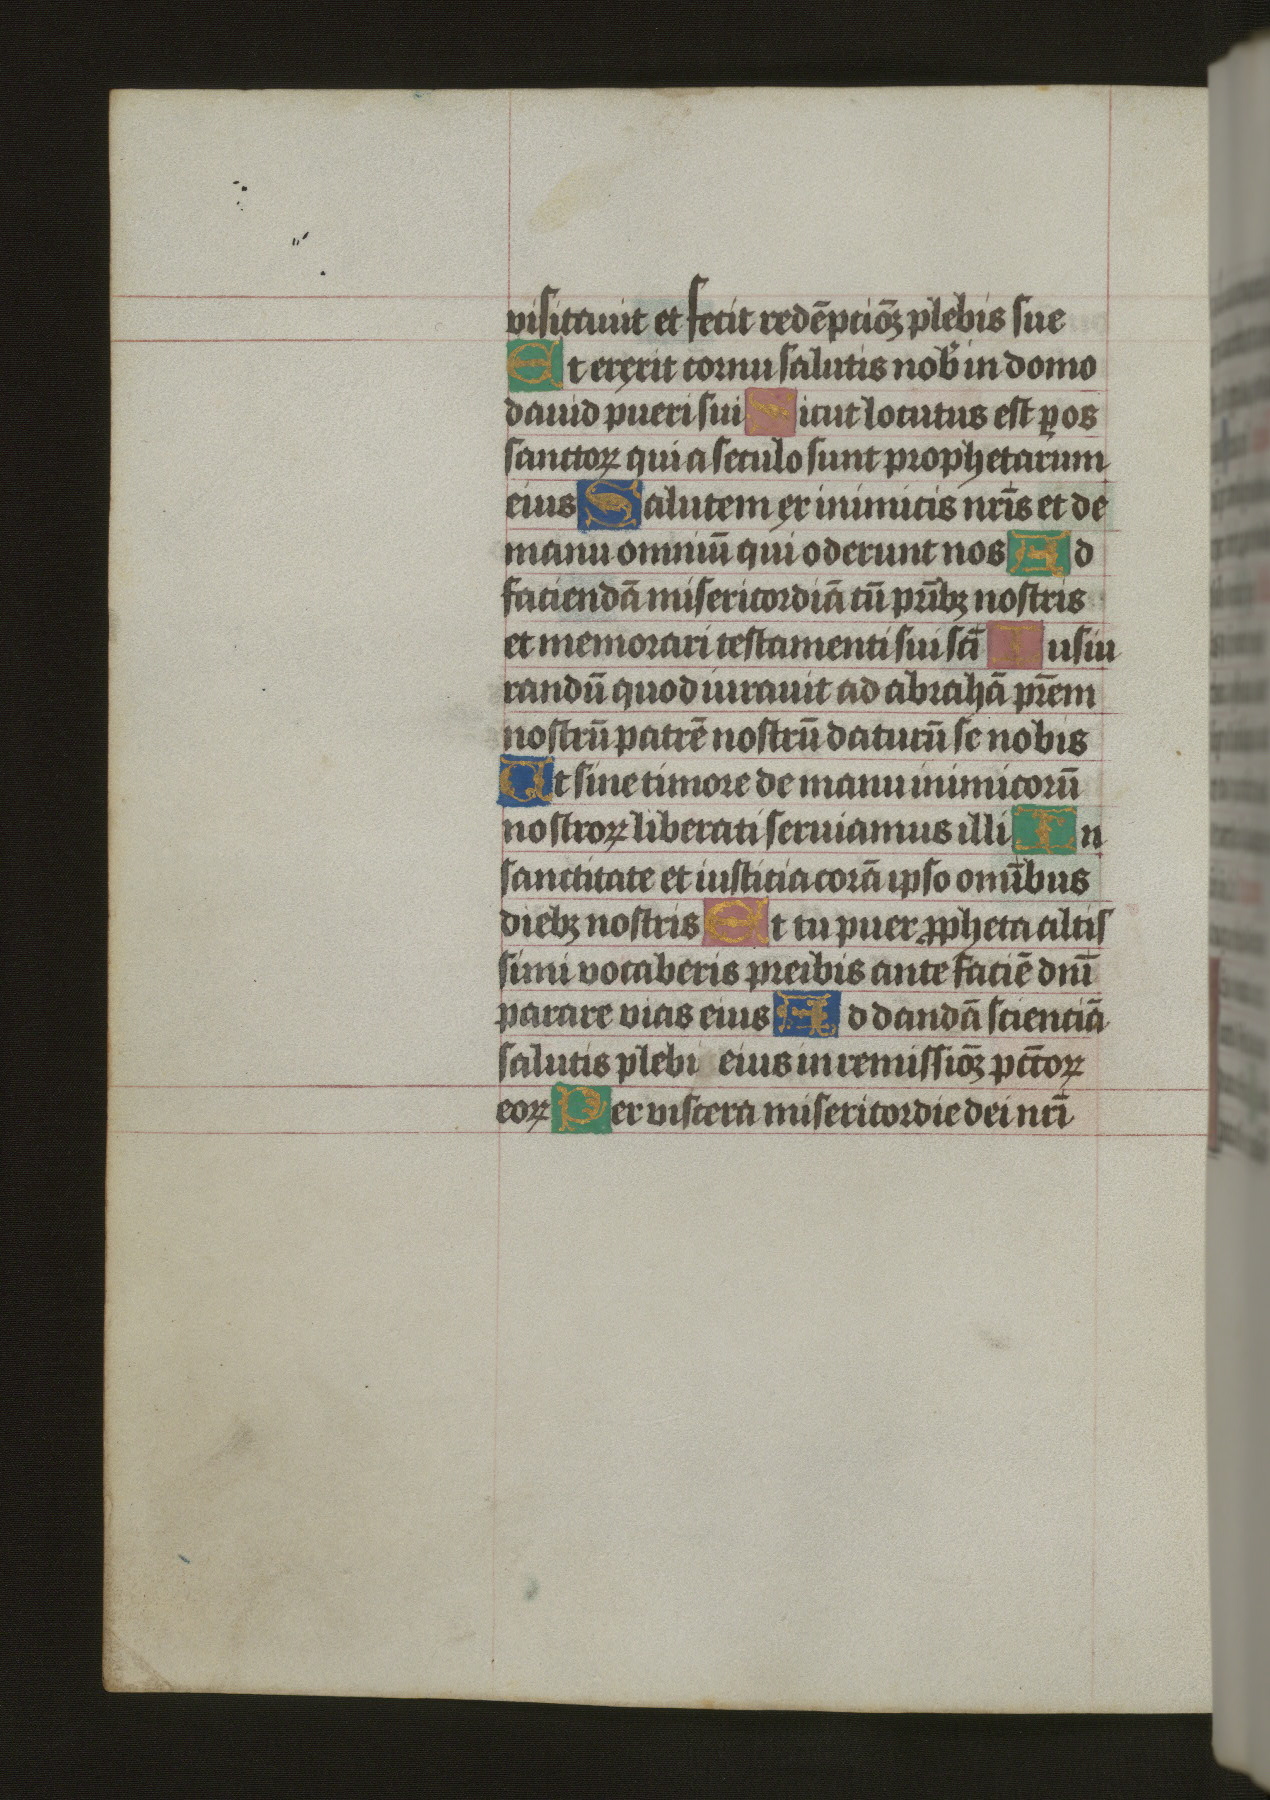 visitauit et fecit redēpcioꝫ̄ plebis sue
Et erexit cornu salutis nob̾ in domo
dauid pueri sui Sicut locutus est ꝑ os
sanctoꝝ qui a seculo sunt prophetarum
eius Salutem ex inimicis nr̄is et de
manu omniū qui oderunt nos Ad
faciendā misericordiā cū pr̄ibꝫ nostris
et memorari testamenti sui sc̄i Iusiu
randū quod iurauit ad abrahā pr̄em
nostrū patrē nostrū daturū se nobis
Ut sine timore de manu inimicorū
nostroꝝ liberati seruiamus illi In
sanctitate et iusticia corā ipso omībus
diebꝫ nostris Et tu puer ꝓpheta altis
simi vocaberis preibis ante faciē dn̄i
parare vias eius Ad dandā scienciā
salutis plebi eius in remissioꝫ̄ pc̄toꝝ
eoꝝ Per viscera misericordie dei nr̄i